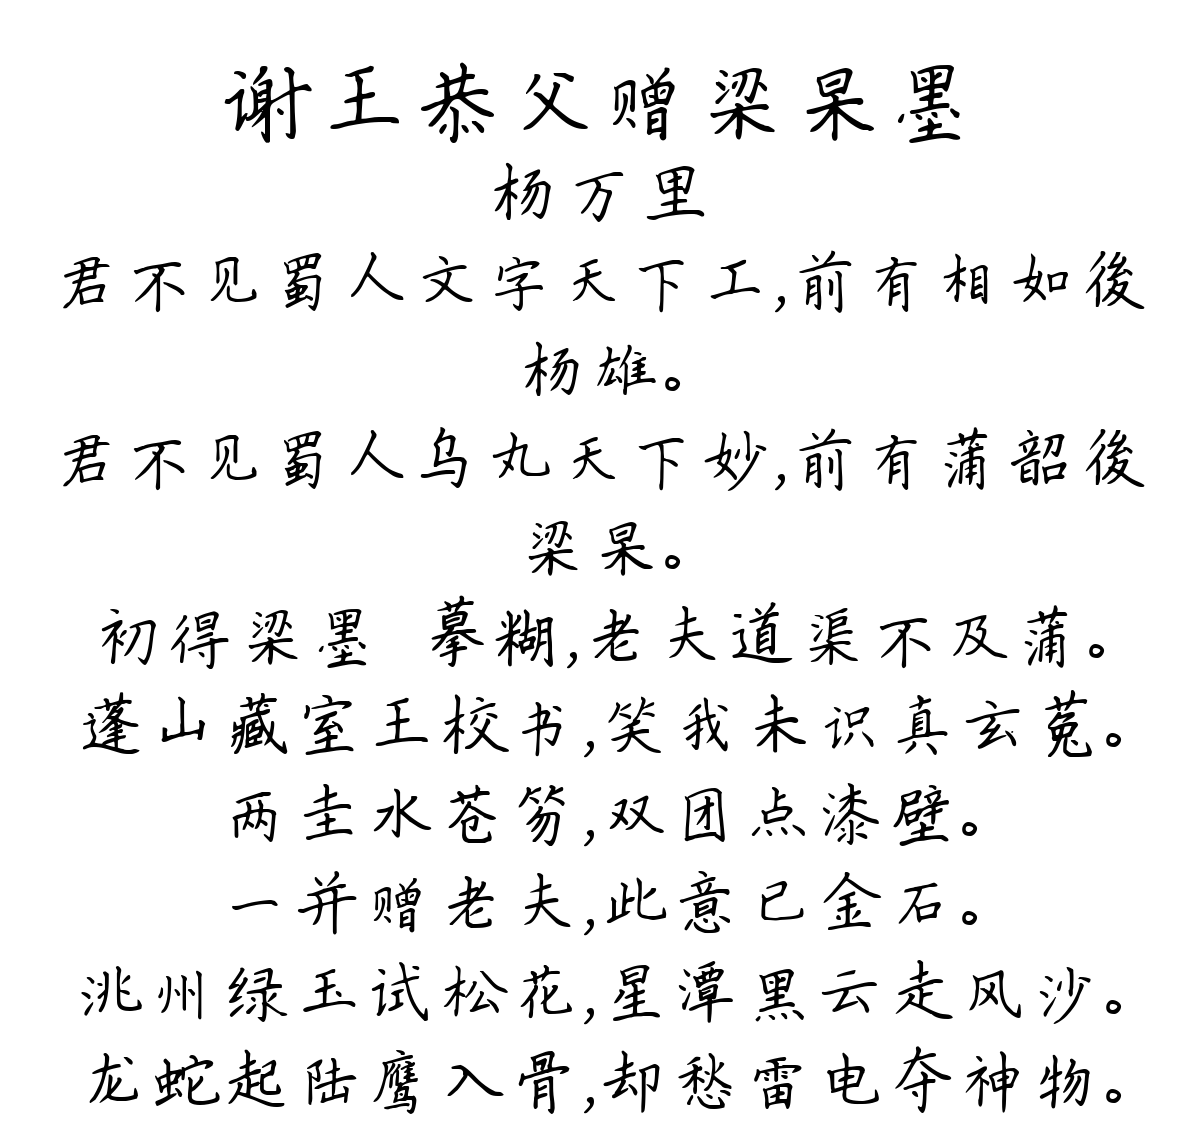 谢王恭父赠梁杲墨
杨万里
君不见蜀人文字天下工,前有相如後
杨雄。
君不见蜀人乌丸天下妙,前有蒲韶後
梁杲。
初得梁墨 摹糊,老夫道渠不及蒲。
蓬山藏室王校书,笑我未识真玄菟。
两圭水苍笏,双团点漆壁。
一并赠老夫,此意已金石。
洮州绿玉试松花,星潭黑云走风沙。
龙蛇起陆鹰入骨,却愁雷电夺神物。